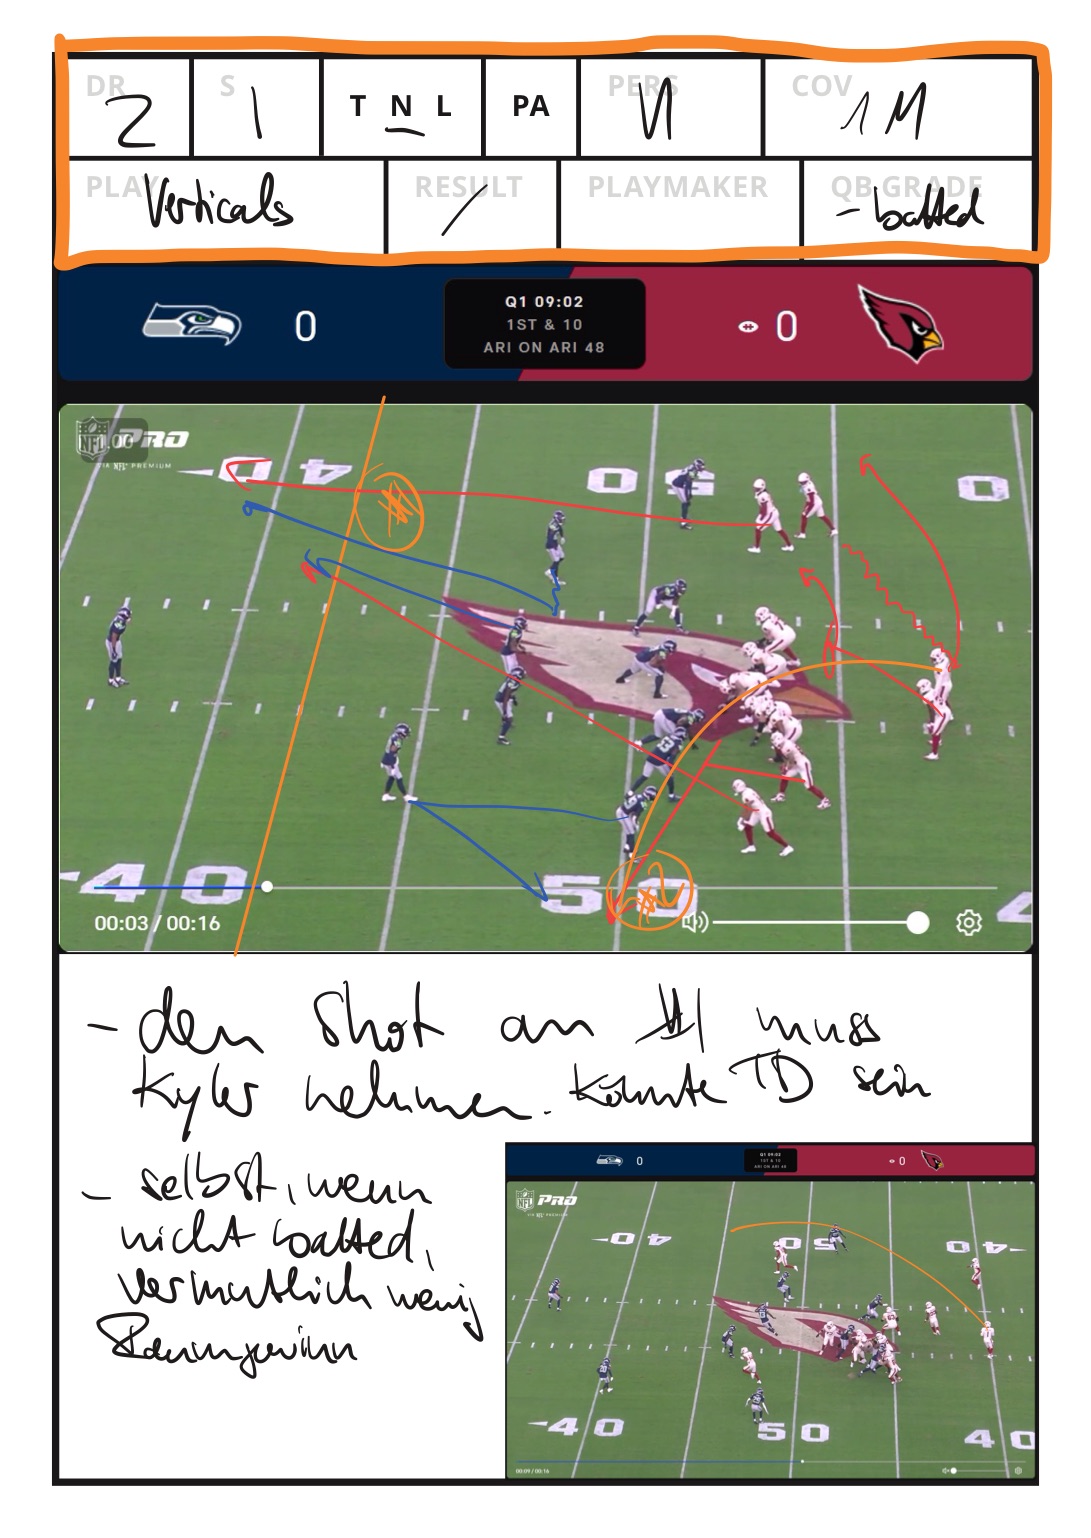 DR 2
S 1
T N L
PA
PERS 11
COV 1M
PLAY Verticals
RESULT /
PLAYMAKER
QB GRADE - batted
0
Q1 09:02
1ST & 10
ARI ON ARI 48
0
NFL PRO
VIA NFL+ PREMIUM
4 0
5 0
#1
4 0
5 0
#2
4
00:03 / 00:16
- den Shot an #1 muss
Kyler nehmen. Könnte TD sein
- selbst, wenn
nicht batted,
vermutlich wenig
Raumgewinn
0
Q1 09:02
1ST & 10
ARI ON ARI 48
0
NFL PRO
VIA NFL+ PREMIUM
4 0
5 0
4 0
4 0
5 0
4 0
00:09 / 00:16